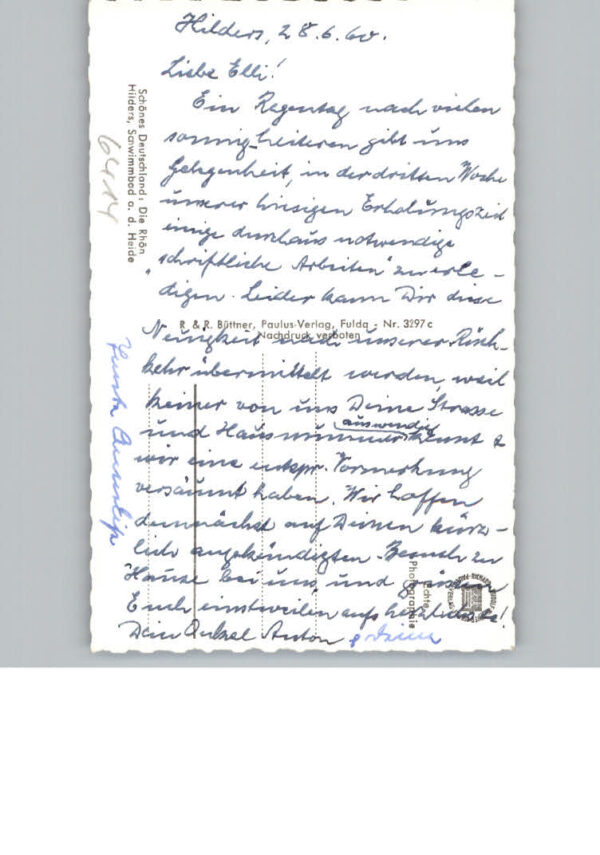 Hilders, 28.6.60.
Liebe Elli!
Ein Regentag nach vielen
sonnig-heiteren gibt uns
Gelegenheit, in der dritten Woche
unserer hiesigen Erholungszeit
einige durchaus notwendige
"schriftliche Arbeiten" zu erle-
digen. Leider kann Dir diese
Neuigkeit nach unserer Rück-
kehr übermittelt werden, weil
keiner von uns Deine Strasse
und Hausnummer auswendig kennt &
wir eine entspr. Vormerkung
versäumt haben. Wir hoffen
demnächst auf Deinen kürz-
lich angekündigten Besuch zu
Hause bei uns und grüssen
Euch einstweilen aufs herzlichste!
Dein Onkel Anton
Schönes Deutschland: Die Rhön
Hilders, Schwimmbad a. d. Heide
6414
R. & R. Büttner, Paulus-Verlag, Fulda - Nr. 3297 c
Nachdruck verboten
Echte
Photographie